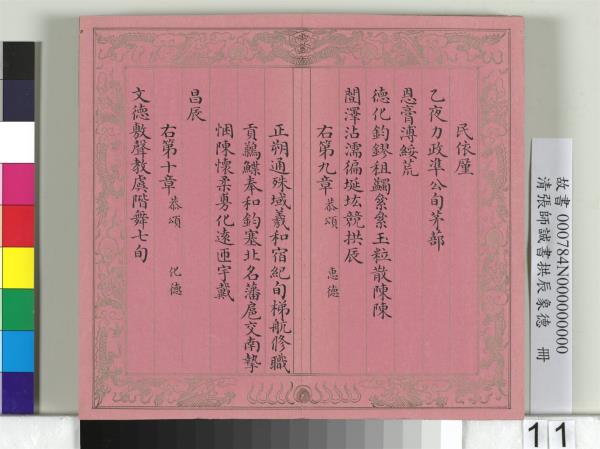 民依厪
乙夜力政準公旬茅蔀
恩膏溥綏荒
德化鈞鏐租蠲纍纍玉粒散陳陳
闓澤沾濡徧埏垓競拱辰
右第九章 恭頌 惠德
正朔通殊域羲和宿紀旬梯航修職
貢鶼鰈奉和鈞塞北名藩扈交南摯
悃陳懷柔勇化遠匝宇戴
昌辰
右第十章 恭頌 化德
文德敷聲教虞階舞七旬
故書 000784N000000000
清張師誠書拱辰象德 冊
11